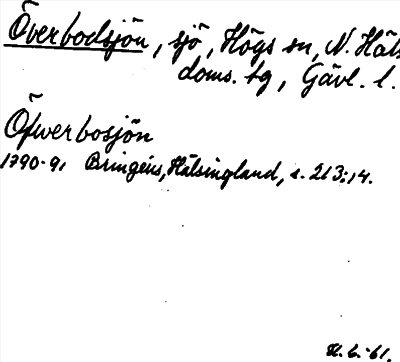 Överbodsjön, sjö, Högs sn, N. Häls
doms. bg, Gävl. l.
Öfwerbosjön
1790-91 Bringéus, Hälsingland, s. 213:14.
-61.